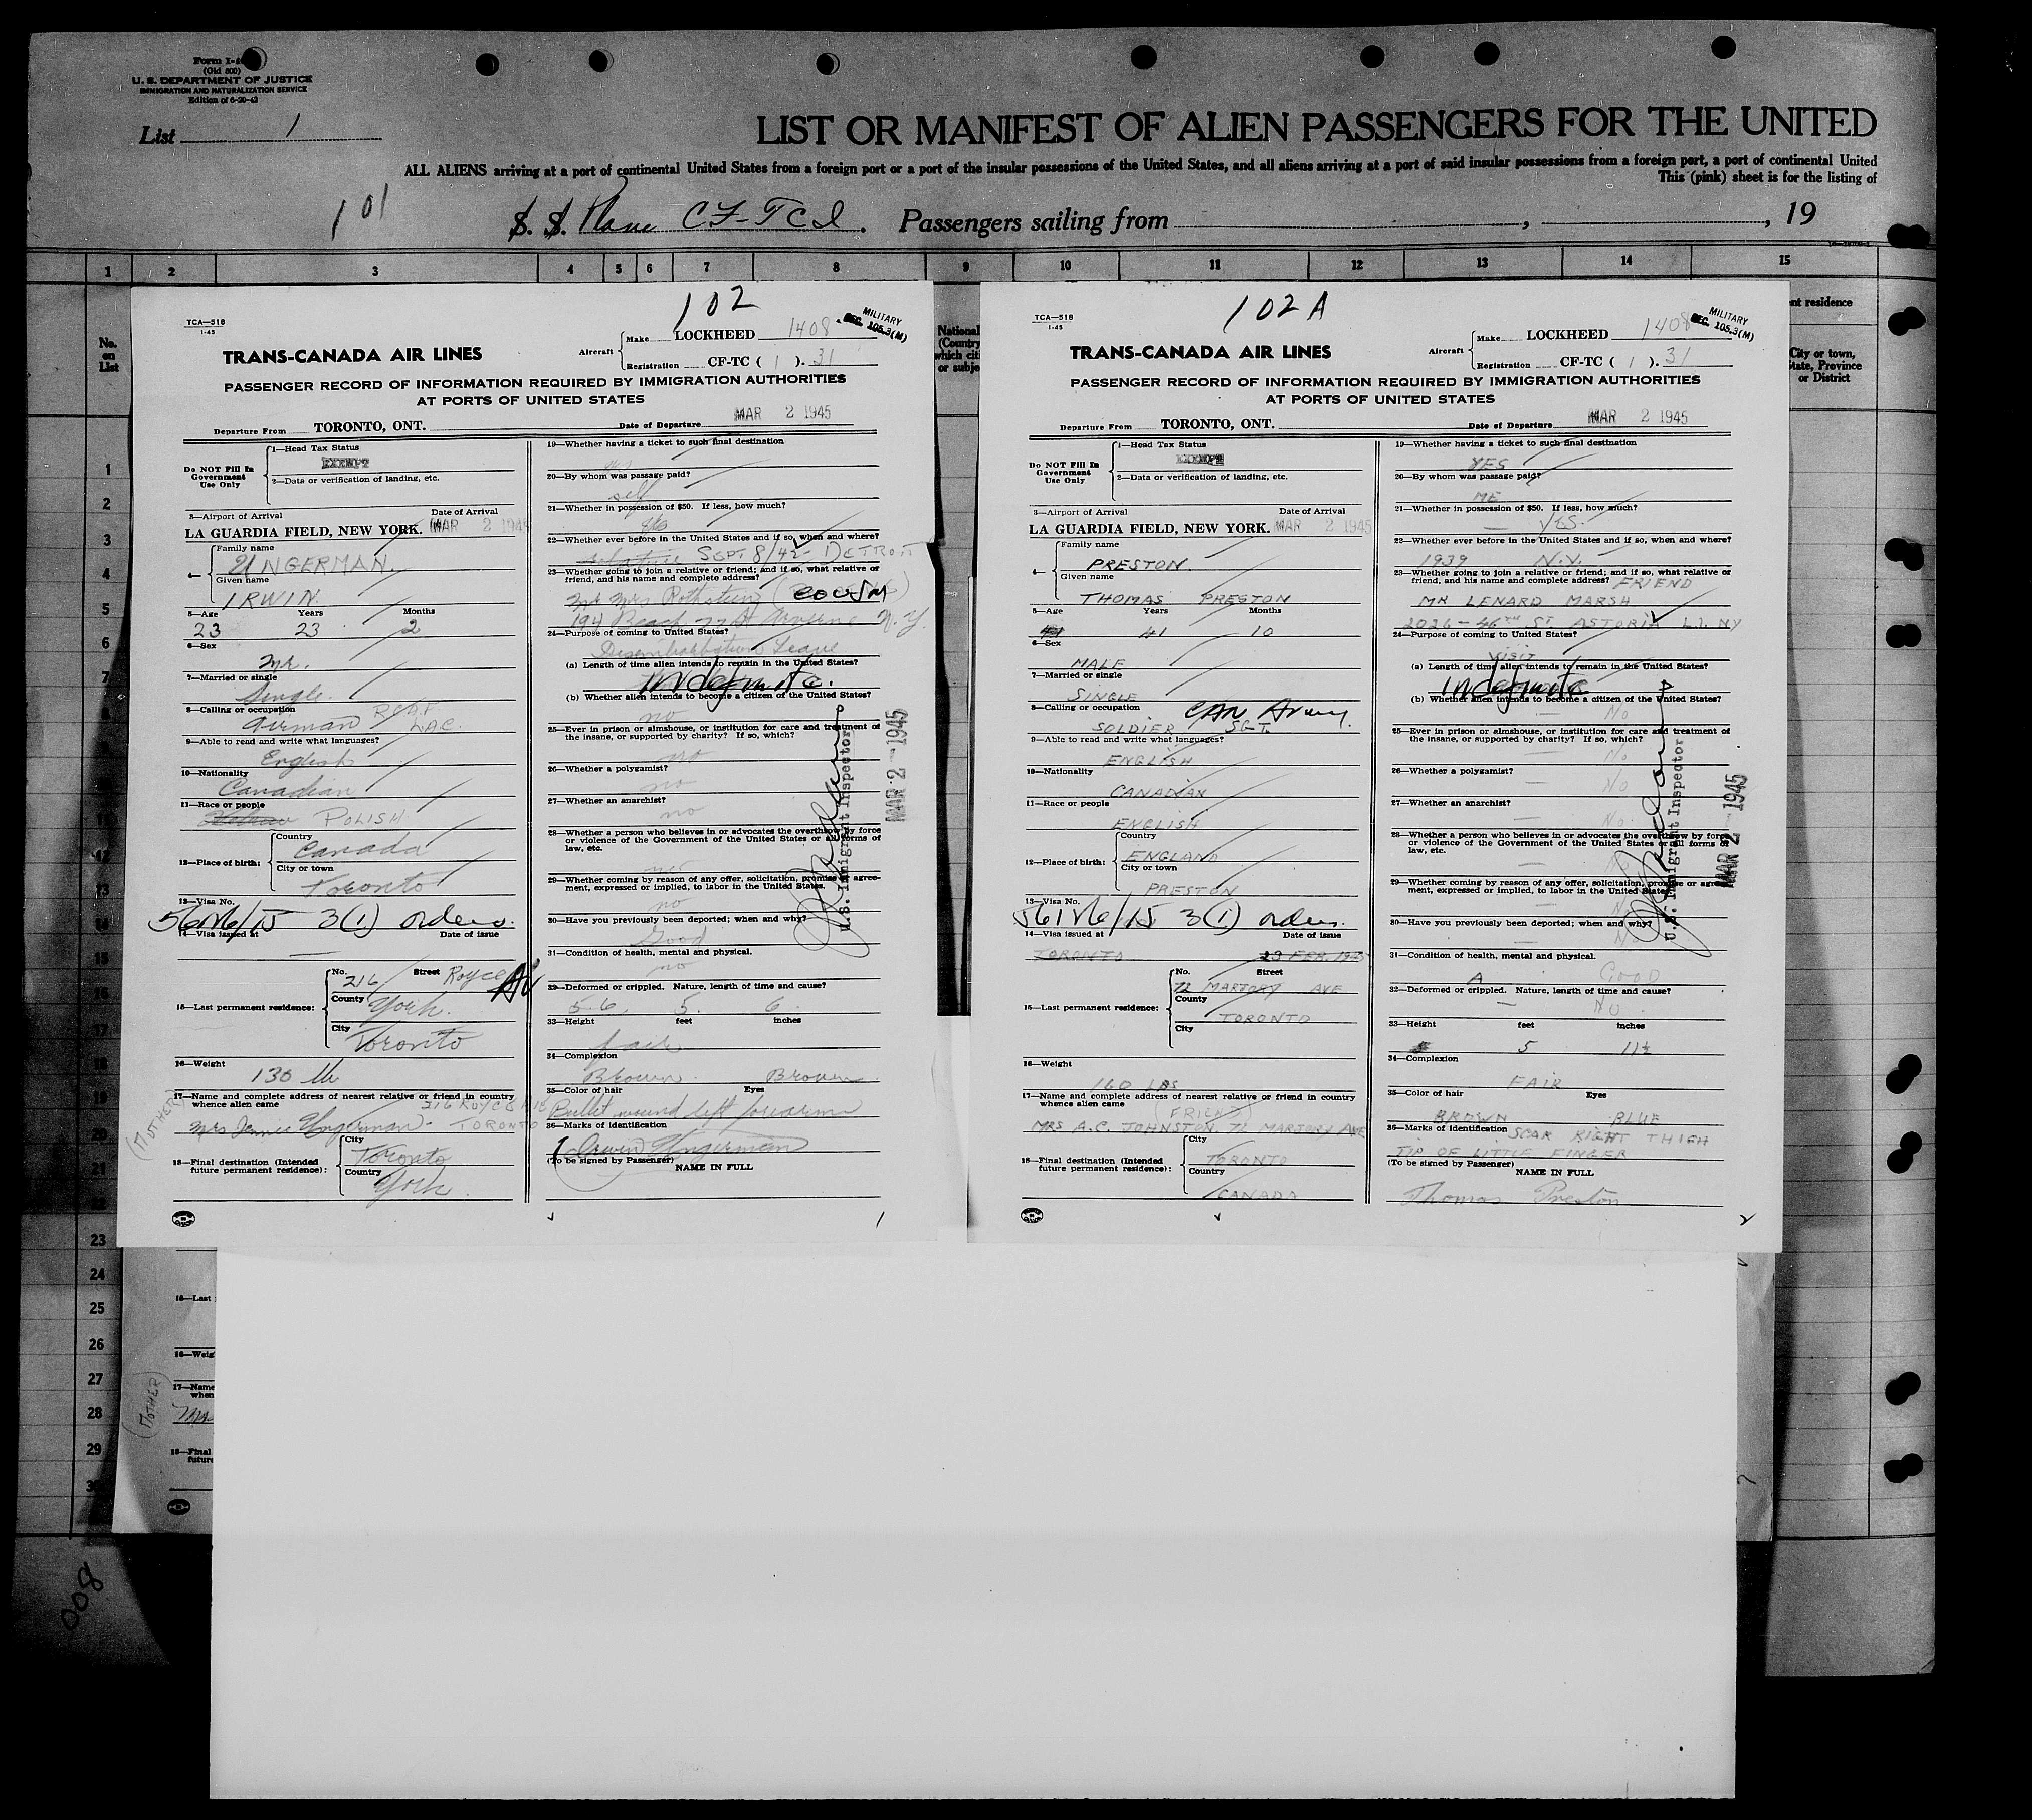 Form I-4
(Old 500)
U. S. DEPARTMENT OF JUSTICE
IMMIGRATION AND NATURALIZATION SERVICE
Edition of 6-20-42
List 1
LIST OR MANIFEST OF ALIEN PASSENGERS FOR THE UNITED
ALL ALIENS arriving at a port of continental United States from a foreign port or a port of the insular possessions of the United States, and all aliens arriving at a port of said insular possessions from a foreign port, a port of continental United
This (pink) sheet is for the listing of
101
S. S. Plane CF-TCI. Passengers sailing from , , 19
1 2 3 4 5 6 7 8 9 10 11 12 13 14 15
No. on List
National
(Country
which citi
or subje
nt residence
City or town,
State, Province
or District
102
TCA—518
1-45
MILITARY
SEC. 105.3(M)
TRANS-CANADA AIR LINES
Aircraft
Make LOCKHEED 1408
Registration CF-TC ( 1 ). 31
PASSENGER RECORD OF INFORMATION REQUIRED BY IMMIGRATION AUTHORITIES
AT PORTS OF UNITED STATES
Departure From TORONTO, ONT. Date of Departure MAR 2 1945
Do NOT Fill In
Government
Use Only
1—Head Tax Status
EXEMPT
2—Data or verification of landing, etc.
3—Airport of Arrival Date of Arrival
LA GUARDIA FIELD, NEW YORK. MAR 2 1945
4—
Family name
UNGERMAN
Given name
IRWIN
5—Age Years Months
23 23 2
6—Sex
Mr.
7—Married or single
Single
8—Calling or occupation RCAF
Airman LAC.
9—Able to read and write what languages?
English
10—Nationality
Canadian
11—Race or people
Hebrew POLISH
12—Place of birth:
Country
Canada
City or town
Toronto
13—Visa No.
3(1) orders.
14—Visa issued at Date of issue
15—Last permanent residence:
No. Street
216 Royce Av
County
York.
City
Toronto
16—Weight
130 lbs
17—Name and complete address of nearest relative or friend in country
whence alien came
216 ROYCE AVE
(MOTHER)
Mrs Jennie Ungerman - TORONTO
18—Final destination (Intended
future permanent residence):
City
Toronto
Country
York
19—Whether having a ticket to such final destination
yes
20—By whom was passage paid?
self
21—Whether in possession of $50. If less, how much?
yes
22—Whether ever before in the United States and if so, when and where?
SEPT 8/42 - DETROIT
23—Whether going to join a relative or friend; and if so, what relative or
friend, and his name and complete address?
Mr Mrs Rothstein (COUSIN)
194 Beach 77 St Arverne N.Y.
24—Purpose of coming to United States?
Disembarkation Leave
(a) Length of time alien intends to remain in the United States?
Indefinite.
(b) Whether alien intends to become a citizen of the United States?
no
25—Ever in prison or almshouse, or institution for care and treatment of
the insane, or supported by charity? If so, which?
no
26—Whether a polygamist?
no
27—Whether an anarchist?
no
28—Whether a person who believes in or advocates the overthrow by force
or violence of the Government of the United States or all forms of
law, etc.
29—Whether coming by reason of any offer, solicitation, promise or agree-
ment, expressed or implied, to labor in the United States.
no
30—Have you previously been deported; when and why?
Good
31—Condition of health, mental and physical.
no
32—Deformed or crippled. Nature, length of time and cause?
5-6. 5. 6.
33—Height feet inches
fair
34—Complexion
Brown. Brown.
35—Color of hair Eyes
Bullet wound left forearm
36—Marks of identification
Irwin Ungerman
(To be signed by Passenger)
NAME IN FULL
U.S. Immigrant Inspector
MAR 2 - 1945
1
102 A
TCA—518
1-45
MILITARY
SEC. 105.3(M)
TRANS-CANADA AIR LINES
Aircraft
Make LOCKHEED 1408
Registration CF-TC ( 1 ). 31
PASSENGER RECORD OF INFORMATION REQUIRED BY IMMIGRATION AUTHORITIES
AT PORTS OF UNITED STATES
Departure From TORONTO, ONT. Date of Departure MAR 2 1945
Do NOT Fill In
Government
Use Only
1—Head Tax Status
EXEMPT
2—Data or verification of landing, etc.
3—Airport of Arrival Date of Arrival
LA GUARDIA FIELD, NEW YORK. MAR 2 1945
4—
Family name
PRESTON
Given name
THOMAS PRESTON
5—Age Years Months
41 10
6—Sex
MALE
7—Married or single
SINGLE
8—Calling or occupation CAN Army.
SOLDIER SGT.
9—Able to read and write what languages?
ENGLISH
10—Nationality
CANADIAN
11—Race or people
ENGLISH
12—Place of birth:
Country
ENGLAND
City or town
PRESTON
13—Visa No.
3(1) orders.
14—Visa issued at Date of issue
TORONTO 23 FEB. 1945
15—Last permanent residence:
No. Street
72 MARJORY AVE
County
TORONTO
City
16—Weight
160 LBS
17—Name and complete address of nearest relative or friend in country
whence alien came
(FRIEND)
MRS A.C. JOHNSTON 72 MARJORY AVE
18—Final destination (Intended
future permanent residence):
City
TORONTO
Country
CANADA
19—Whether having a ticket to such final destination
YES
20—By whom was passage paid?
ME
21—Whether in possession of $50. If less, how much?
— YES.
22—Whether ever before in the United States and if so, when and where?
1939 N.Y.
23—Whether going to join a relative or friend; and if so, what relative or
friend, and his name and complete address? FRIEND
MR LENARD MARSH
2026 - 46TH ST. ASTORIA L.I. NY
24—Purpose of coming to United States?
VISIT
(a) Length of time alien intends to remain in the United States?
Indefinite
(b) Whether alien intends to become a citizen of the United States?
— No
25—Ever in prison or almshouse, or institution for care and treatment of
the insane, or supported by charity? If so, which?
— No
26—Whether a polygamist?
— No
27—Whether an anarchist?
— No.
28—Whether a person who believes in or advocates the overthrow by force
or violence of the Government of the United States or all forms of
law, etc.
29—Whether coming by reason of any offer, solicitation, promise or agree-
ment, expressed or implied, to labor in the United States.
30—Have you previously been deported; when and why?
— No
31—Condition of health, mental and physical.
A Good
32—Deformed or crippled. Nature, length of time and cause?
— No.
33—Height feet inches
5 11½
34—Complexion
FAIR
35—Color of hair Eyes
BROWN BLUE
36—Marks of identification SCAR RIGHT THIGH
TIP OF LITTLE FINGER
(To be signed by Passenger)
NAME IN FULL
Thomas Preston
U.S. Immigrant Inspector
MAR 2 - 1945
2
1
2
3
4
5
6
7
8
9
12
13
14
15
16
17
18
19
20
21
22
23
24
25
26
27
28
29
30
15—Last
16—Weig
17—Name
when
(MOTHER)
Mrs
18—Final
future
008